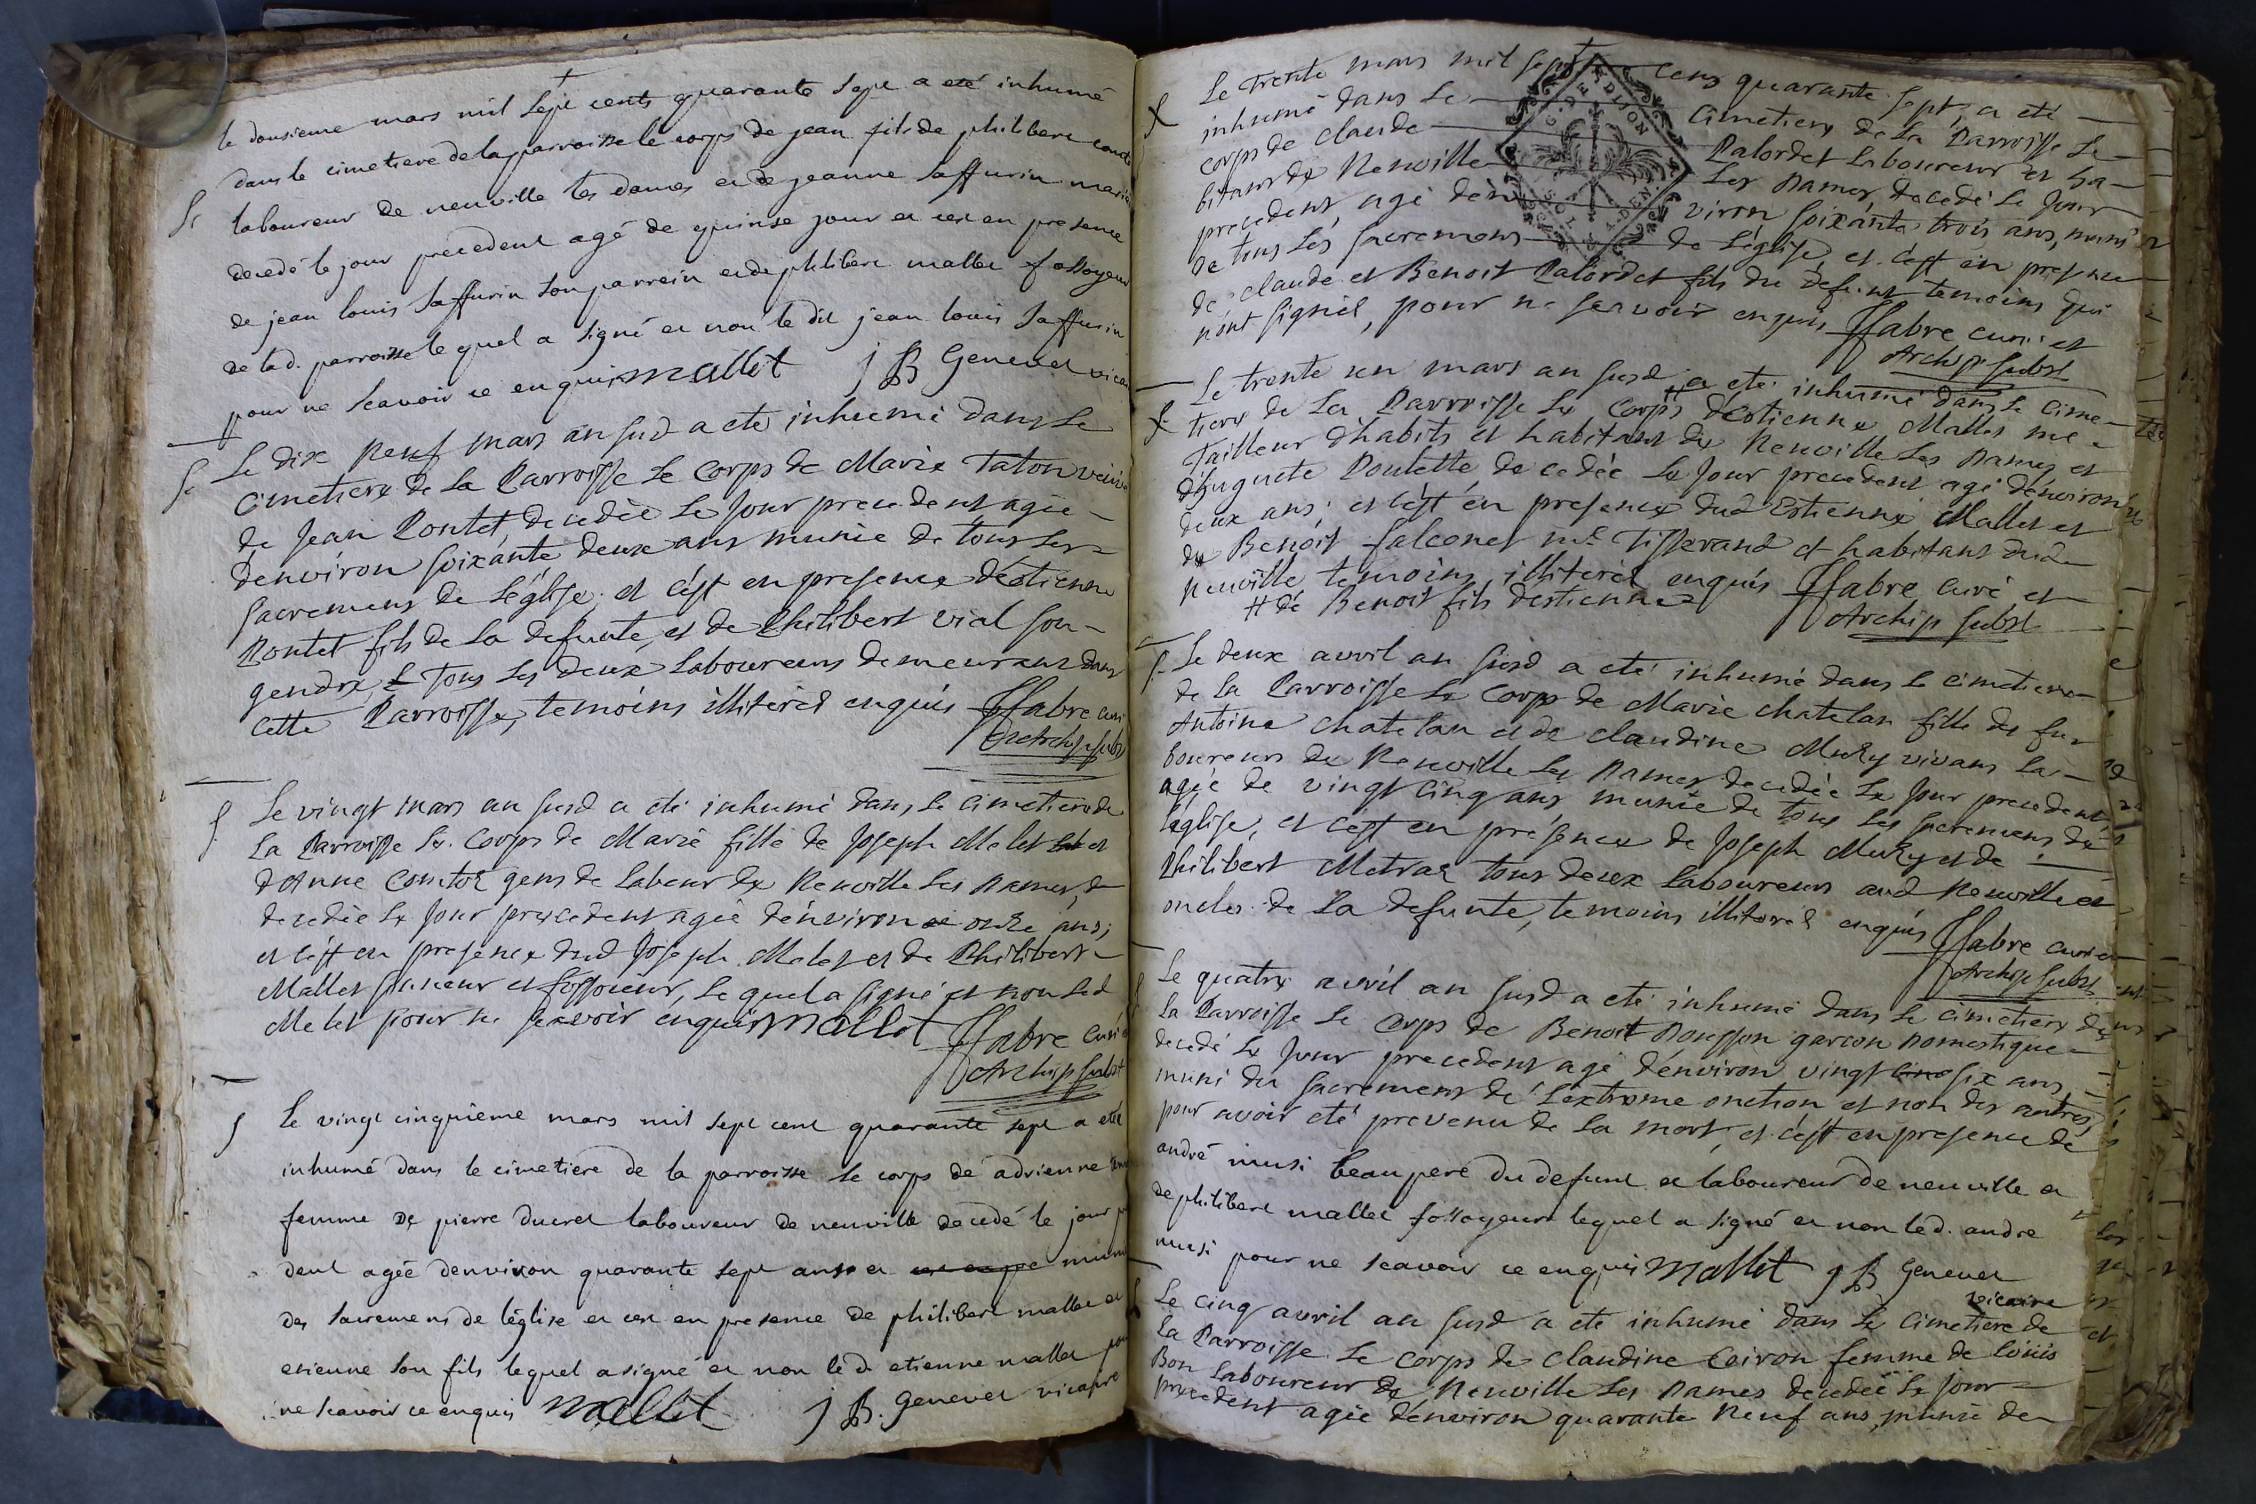 le dousieme mars mil sept cents quarante sept a eté inhumé
dans le cimetiere de la parroisse le corps de jean fils de philibert
laboureur de neuville les dames et de jeanne saffurin
decedé le jour precedent agé de quinse jour et cex en presence
de jean louis saffurin son parrein et de philibert mallet fossoyeur
de lad. parroisse le quel a signé et non le dit jean louis saffurin
pour ne scavoir ce enquis mallet J B Genevet
Le dix neuf mars an susd a eté inhumé dans le
cimetiere de la Parroisse le corps de Marie Taton veuve
de Jean Pontet, decedée le jour precedent agée
d'environ soixante deux ans munie de tous les
sacremens de l'église, et c'est en presence d'estienne
Pontet fils de la defunte, et de Philibert vial son
gendre, Tous les deux laboureurs demeurans dans
cette Parroisse, temoins illiterés enquis Fabre curé
et Archip subst
Le vingt mars an susd a eté inhumé dans le cimetiere de
la Parroisse le corps de Marie fille de Joseph Melet et
d'Anne gens de labeur de Neuville les Dames,
decedée le jour precedent agée d'environ onze ans;
et c'est en presence dud Joseph Melet et de Philibert
Mallet et fossoieur, le quel a signé et non led
Melet pour ne scavoir enquis mallet Fabre curé
Archip subst
Le vingt cinquieme mars mil sept cent quarante sept a eté
inhumé dans le cimetiere de la parroisse le corps de adrienne
femme de pierre ducret laboureur de neuville decedé le jour
dent agée denviron quarante sept ans et
des sacremens de léglise et cex en presence de philibert mallet et
etienne son fils lequel a signé et non led etienne mallet
ne scavoir ce enquis mallet J B. Genevet vicaire
Le trente mars mil sept cens quarante sept, a eté
inhumé dans le cimetiere de la Parroisse le
corps de claude Palordet laboureur et ha-
bitant de Neuville les Dames, decedé le jour
precedent, agé d'en viron soixante trois ans, muni
de tous les sacremens de l'église, et c'est en presence
de claude et Benoit Palordet fils du defunt temoins qui
n'ont signés, pour ne scavoir enquis Fabre curé et
Archip subst
G. DE DIJON
SOL
DEN.
Le trente un mars an susd a eté inhumé dans le cime-
tiere de la Parroisse le corps # d'estienne Mallet me
Tailleur d'habits et habitant de Neuville les Dames et
d'huguete Poulette decedée le jour precedent agé d'environ
deux ans; et c'est en presence dud Estienne Mallet et
de Benoit falconet me Tisserand et habitant dud
Neuville temoins illiterés enquis Fabre curé et
# de Benoit fils destienne
Archip subst
Le deux avril an susd a eté inhumé dans le cimetiere
de la Parroisse le corps de Marie chatelan fille de fu
Antoine chatelan et de claudine vivans la-
boureurs de Neuville les Dames decedée le jour precedent,
agée de vingt cinq ans munie de tous les sacremens de
l'église, et c'est en presence de Joseph et de
Philibert Metras tous deux laboureurs aud Neuville et
oncles de la defunte, temoins illiterés enquis Fabre curé et
Archip subst
Le quatre avril an susd a eté inhumé dans le cimetiere de
la Parroisse le corps de Benoit garcon Domestique
decedé le jour precedent agé d'environ vingt six ans
muni du sacrement de l'extreme onction et non des autres,
pour avoir eté prevenu de la mort, et c'est en presence de
andré musi beaupere du defunt et laboureur de neuville et
de philibert mallet fossoyeur lequel a signé et non led. andre
musi pour ne scavoir ce enquis mallet J B Genevet
vicaire
Le cinq avril an susd a eté inhumé dans le Cimetiere de
la Parroisse le corps de claudine Coiron femme de louis
Bon laboureur de Neuville les Dames decedée le jour
precedent agée d'environ quarante Neuf ans, munie de